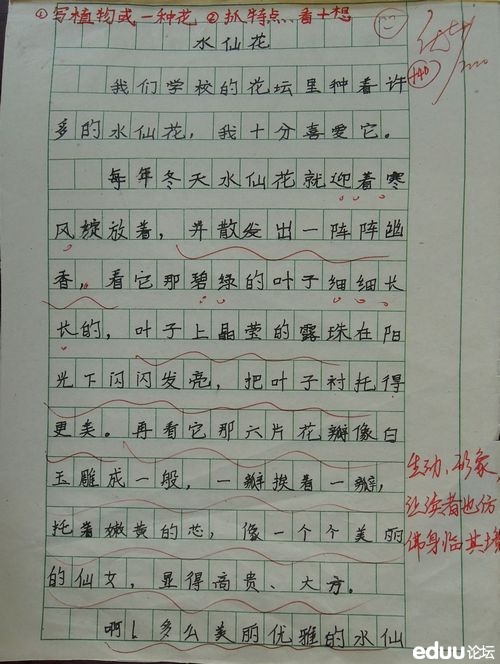 ①写植物或一种花 ②抓特点、看+想
水仙花
我们学校的花坛里种着许
多的水仙花，我十分喜爱它。
每年冬天水仙花就迎着寒
风绽放着，并散发出一阵阵幽
香，看它那碧绿的叶子细细长
长的，叶子上晶莹的露珠在阳
光下闪闪发亮，把叶子衬托得
更美。再看它那六片花瓣像白
玉雕成一般，一瓣挨着一瓣，
托着嫩黄的芯，像一个个美丽
的仙女，显得高贵、大方。
啊！多么美丽优雅的水仙
生动、形象，
让读者也仿
佛身临其境
eduu论坛